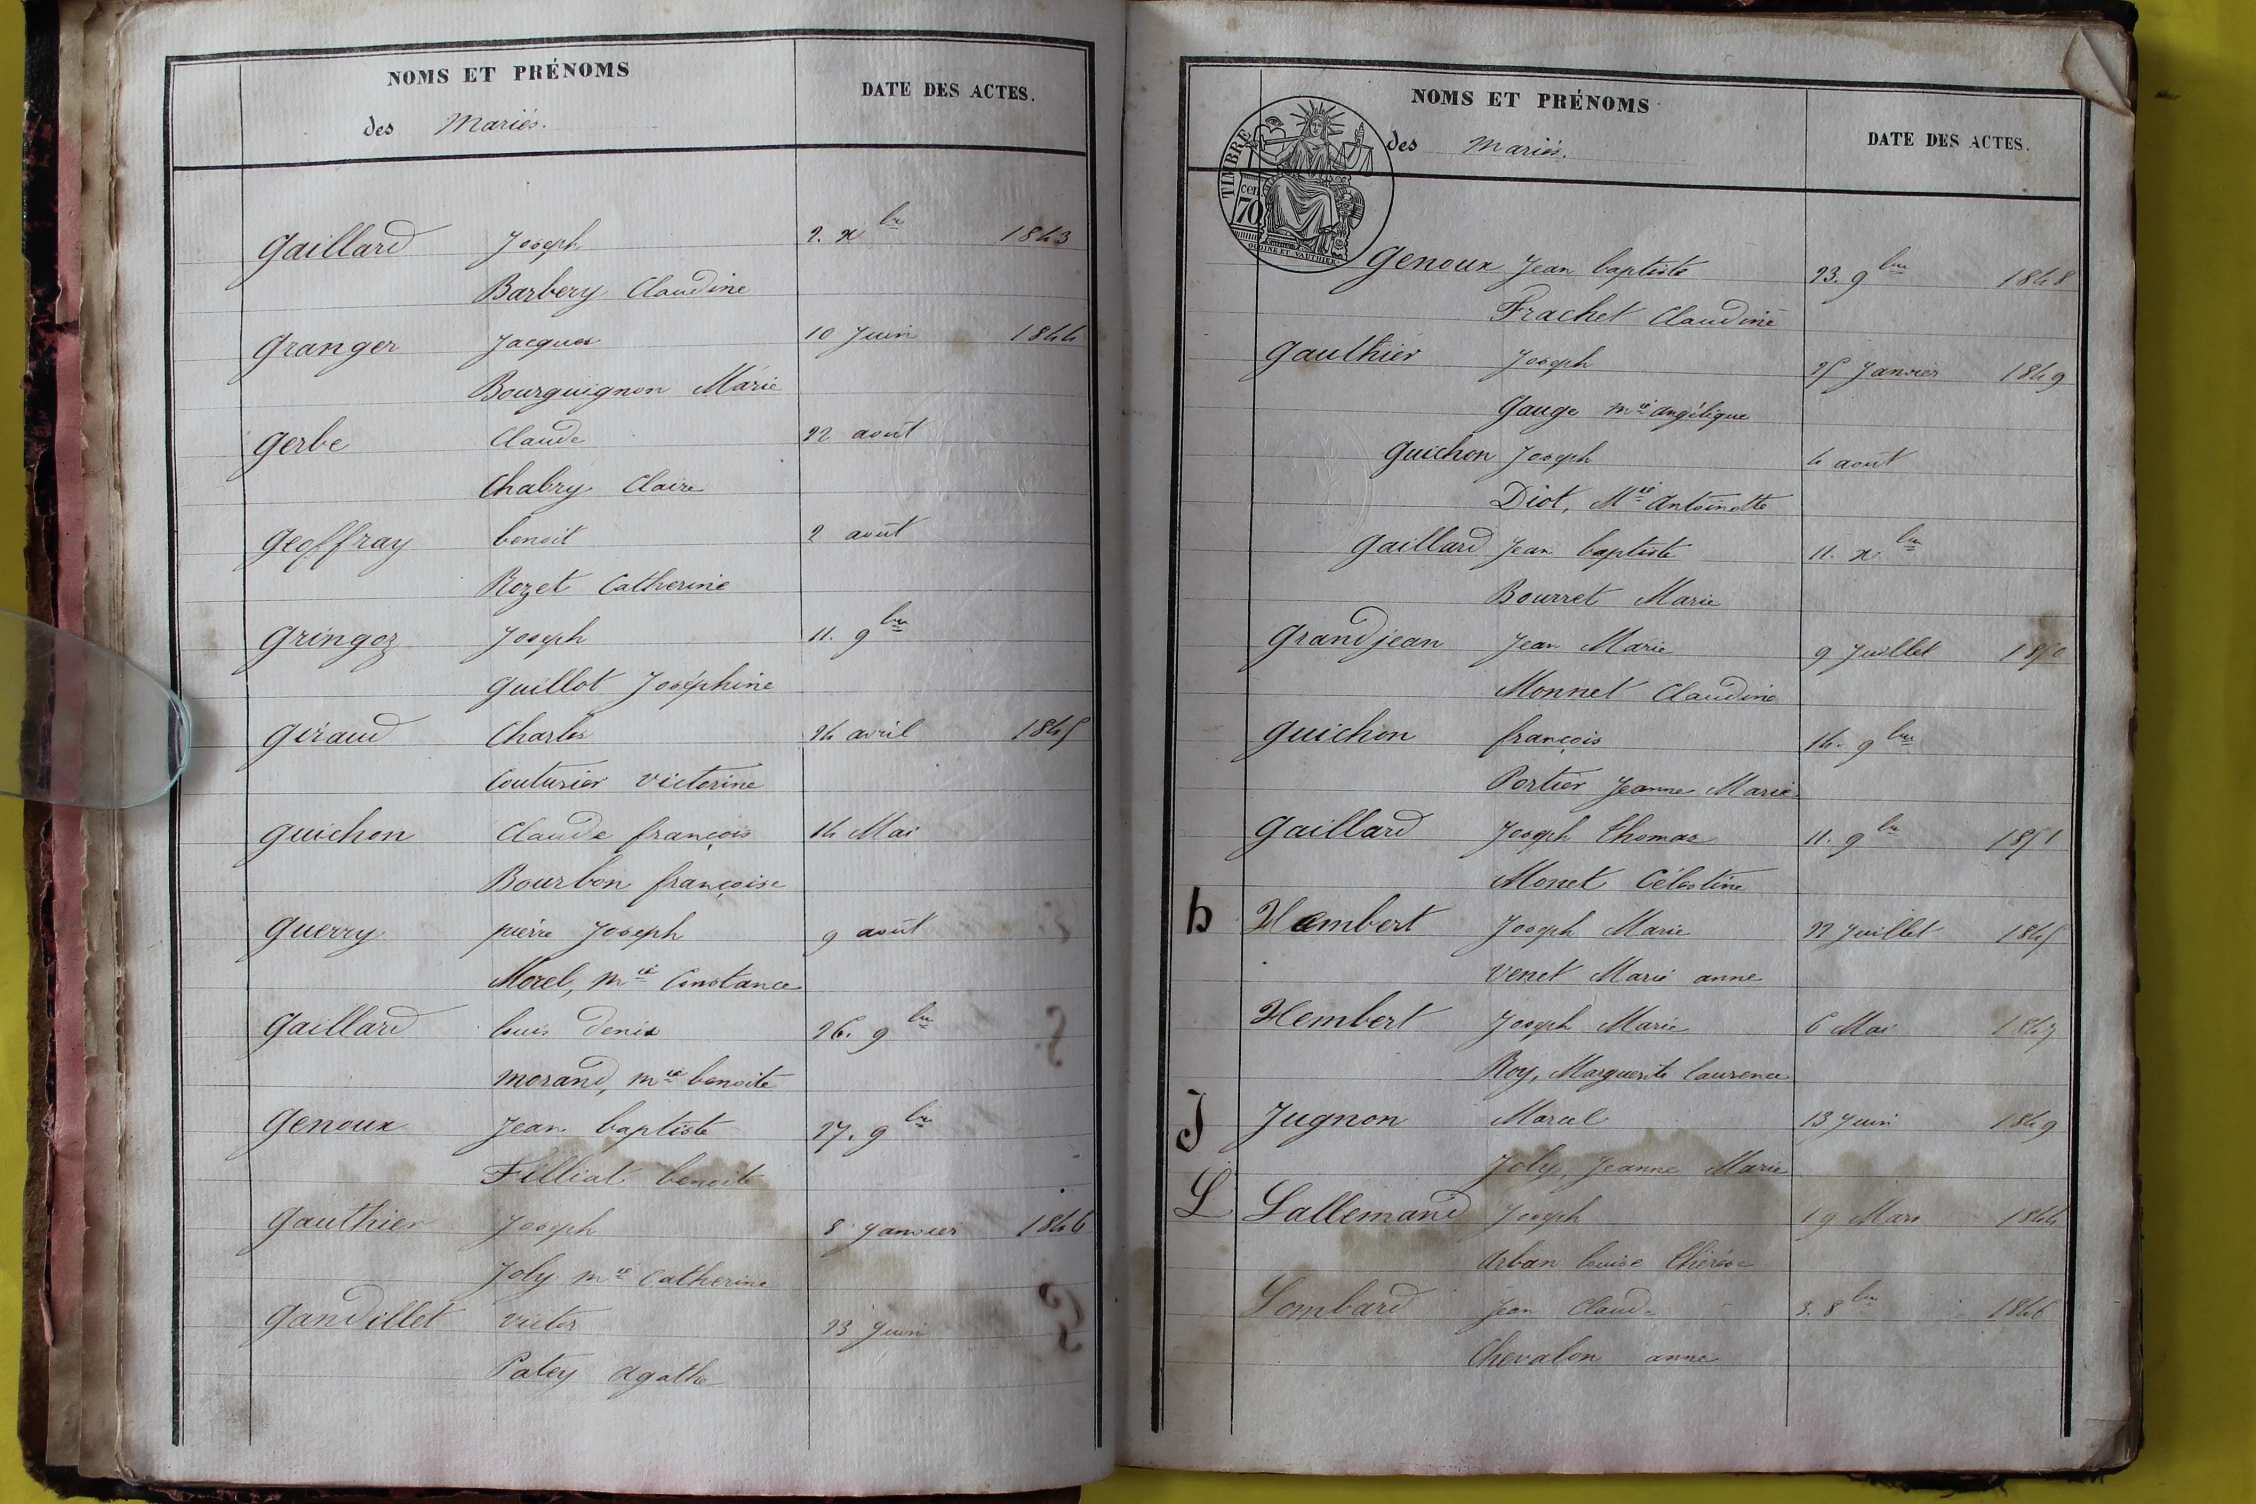 NOMS ET PRÉNOMS
des Mariés.
DATE DES ACTES.
Gaillard Joseph 2. xbre 1843
Barbery Claudine
Granger Jacques 10 Juin 1844
Bourguignon Marie
Gerbe Claude 22 août
Chabry Claire
Geoffray benoit 2 août
Rozet Catherine
Gringoz Joseph 11. 9bre
Guillot Joséphine
Giraud Charles 24 avril 1845
Couturier victorine
Guichon Claude françois 14 Mai
Bourbon françoise
Guerry pierre Joseph 9 août
Morel, Mie Constance
Gaillard louis denis 26. 9bre
morand, mie benoite
Genoux Jean baptiste 27. 9bre
Filliat benoite
Gauthier Joseph 8 Janvier 1846
Joly mie Catherine
Gandillet Victor 23 Juin
Patey Agathe
NOMS ET PRÉNOMS
des Mariés.
DATE DES ACTES.
TIMBRE
70
Genoux Jean baptiste 23. 9bre 1848
Frachet Claudine
Gauthier Joseph 25 Janvier 1849
Gauge mie angélique
Guichon Joseph 4 août
Diot, Mie Antoinette
Gaillard Jean baptiste 11. xbre
Bourret Marie
Grandjean Jean Marie 9 Juillet 1850
Monnet Claudine
Guichon françois 14. 9bre
Portier Jeanne Marie
Gaillard Joseph thomas 11. 9bre 1851
Monet Célestine
h Hembert Joseph Marie 22 Juillet 1845
Venet Marie anne
Hembert Joseph Marie 6 Mai 1847
Roy, Marguerite laurence
J Jugnon Marcel 13 Juin 1849
Joly, Jeanne Marie
L Lallemand Joseph 19 Mars 1844
Arban louise thérèse
Lombard Jean Claude 3. 8bre 1846
Chevalon anne